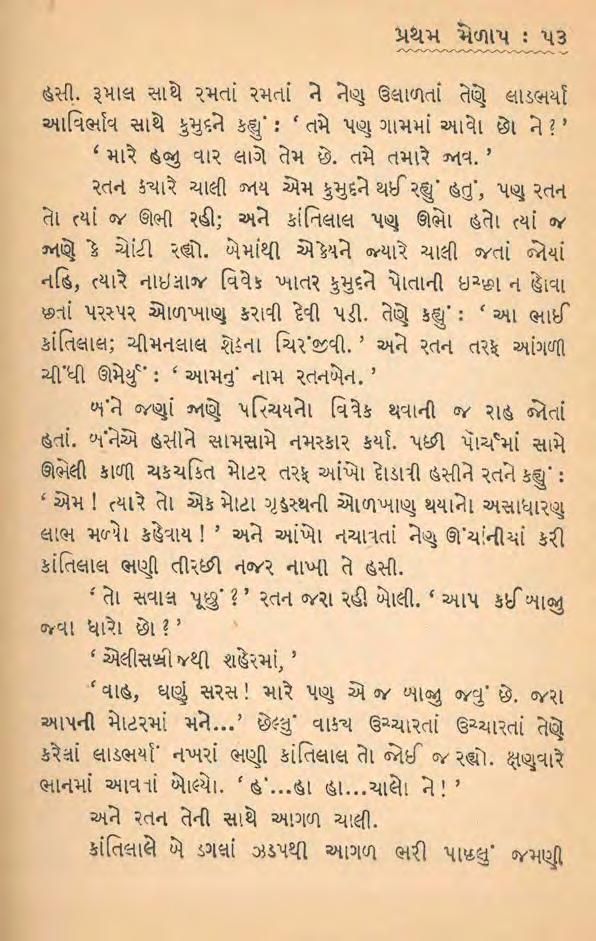 પ્રથમ મેળાપ : ૫૩
હસી. રૂમાલ સાથે રમતાં રમતાં ને નેણ ઉલાળતાં તેણે લાડભર્યા
આવિર્ભાવ સાથે કુમુદને કહ્યું : ‘ તમે પણ ગામમાં આવો છો ને ? ’
‘ મારે હજુ વાર લાગે તેમ છે. તમે તમારે જાવ. ’
રતન ક્યારે ચાલી જાય એમ કુમુદને થઈ રહ્યું હતું, પણ રતન
તો ત્યાં જ ઊભી રહી; અને કાંતિલાલ પણ ઊભો હતો ત્યાં જ
જાણે કે ચોંટી રહ્યો. બેમાંથી એકેયને જ્યારે ચાલી જતાં જોયાં
નહિ, ત્યારે નાઇલાજ વિવેક ખાતર કુમુદને પોતાની ઇચ્છા ન હોવા
છતાં પરસ્પર ઓળખાણ કરાવી દેવી પડી. તેણે કહ્યું : ‘ આ ભાઈ
કાંતિલાલ; ચીમનલાલ શેઠના ચિરંજીવી. ’ અને રતન તરફ આંગળી
ચીંધી ઊમેર્યું : ‘ આમનું નામ રતનબેન. ’
બંને જણાં જાણે પરિચયનો વિવેક થવાની જ રાહ જોતાં
હતાં. બંનેએ હસીને સામસામે નમસ્કાર કર્યા. પછી પૉર્ચમાં સામે
ઊભેલી કાળી ચકચકિત મોટર તરફ આંખો દોડાવી હસીને રતને કહ્યું :
‘ એમ ! ત્યારે તો એક મોટા ગૃહસ્થની ઓળખાણ થયાનો અસાધારણ
લાભ મળ્યો કહેવાય ! ’ અને આંખો નચાવતાં નેણ ઊંચાંનીચાં કરી
કાંતિલાલ ભણી તીરછી નજર નાખી તે હસી.
‘ તો સવાલ પૂછું ? ’ રતન જરા રહી બોલી. ‘ આપ કઈ બાજુ
જવા ધારો છો ? ’
‘ એલીસબ્રીજથી શહેરમાં, ’
‘ વાહ, ઘણું સરસ ! મારે પણ એ જ બાજુ જવું છે. જરા
આપની મોટરમાં મને...’ છેલ્લું વાક્ય ઉચ્ચારતાં ઉચ્ચારતાં તેણે
કરેલાં લાડભર્યાં નખરાં ભણી કાંતિલાલ તો જોઈ જ રહ્યો. ક્ષણવારે
ભાનમાં આવતાં બોલ્યો. ‘ હં...હા હા...ચાલો ને ! ’
અને રતન તેની સાથે આગળ ચાલી.
કાંતિલાલે બે ડગલાં ઝડપથી આગળ ભરી પાછલું જમણી